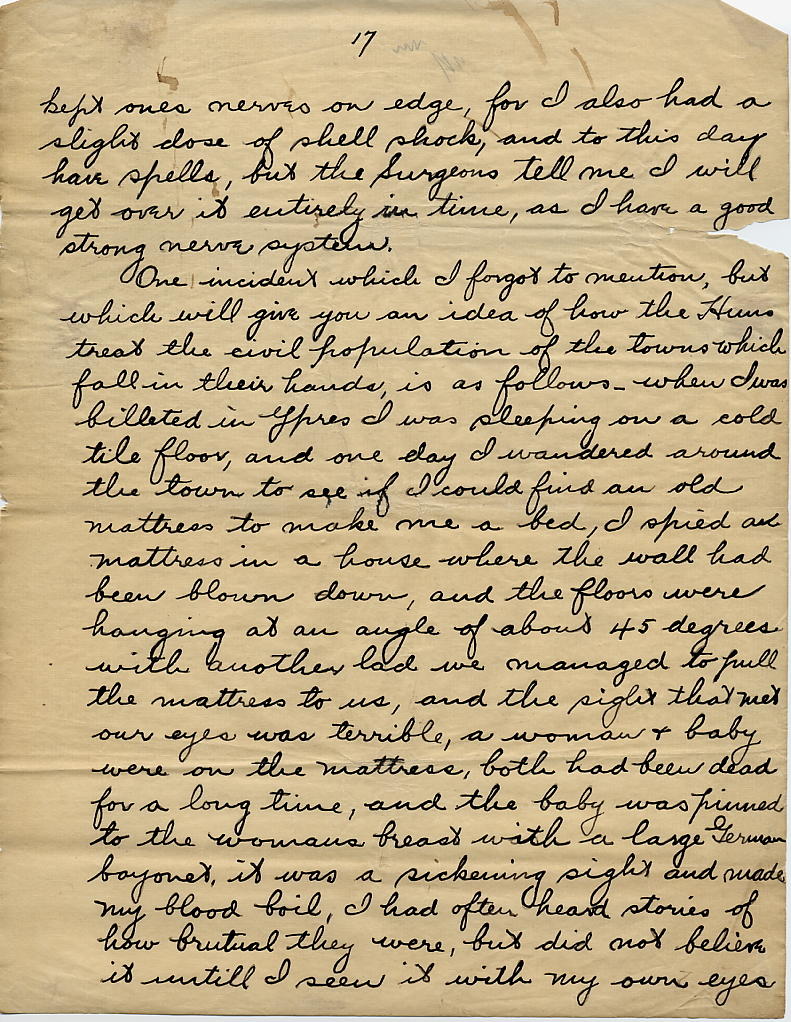 17
kept ones nerves on edge, for I also had a
slight dose of shell shock, and to this day
have spells, but the Surgeons tell me I will
get over it entirely in time, as I have a good
strong nerve system.
One incident which I forgot to mention, but
which will give you an idea of how the Huns
treat the civil population of the towns which
fall in their hands, is as follows - when I was
billeted in Ypres I was sleeping on a cold
tile floor, and one day I wandered around
the town to see if I could find an old
mattress to make me a bed, I spied an
mattress in a house where the wall had
been blown down, and the floors were
hanging at an angle of about 45 degrees
with another lad we managed to pull
the mattress to us, and the sight that met
our eyes was terrible, a woman + baby
were on the mattress, both had been dead
for a long time, and the baby was pinned
to the womans breast with a large German
bayonet, it was a sickening sight and made
my blood boil, I had often heard stories of
how brutual they were, but did not believe
it untill I seen it with my own eyes